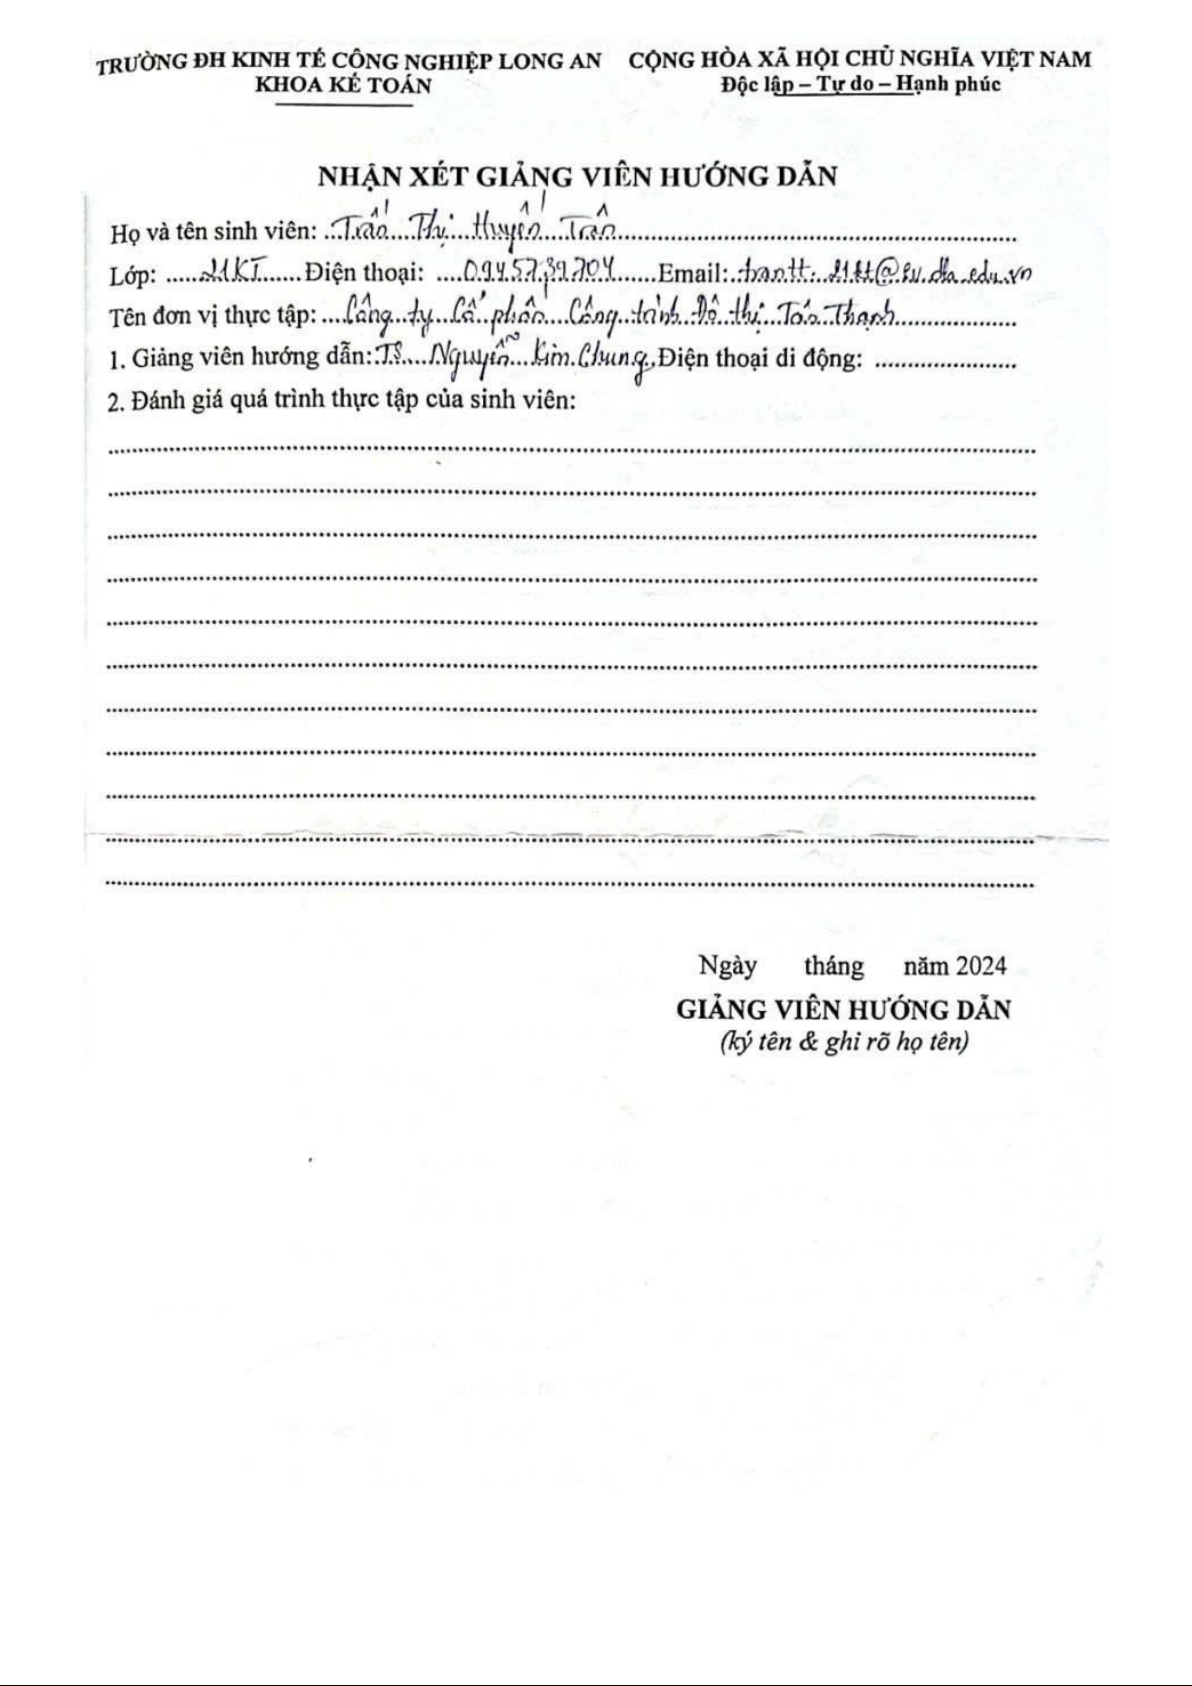 TRƯỜNG ĐH KINH TẾ CÔNG NGHIỆP LONG AN CỘNG HÒA XÃ HỘI CHỦ NGHĨA VIỆT NAM
KHOA KẾ TOÁN Độc lập – Tự do – Hạnh phúc
NHẬN XÉT GIẢNG VIÊN HƯỚNG DẪN
Họ và tên sinh viên: Trần Thị Huyền Trân
Lớp: 21KT Điện thoại: 0945739704 Email: trantt.21kt@sv.dla.edu.vn
Tên đơn vị thực tập: Công ty Cổ phần Công trình Đô thị Tân Thạnh
1. Giảng viên hướng dẫn: TS. Nguyễn Kim Chung Điện thoại di động:
2. Đánh giá quá trình thực tập của sinh viên:
Ngày tháng năm 2024
GIẢNG VIÊN HƯỚNG DẪN
(ký tên & ghi rõ họ tên)